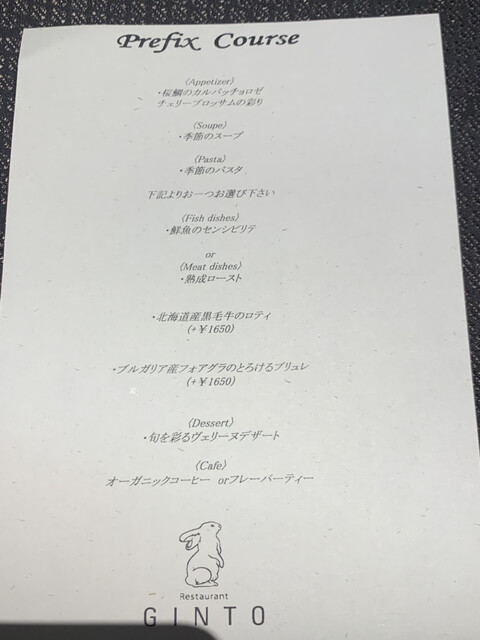 Prefix Course
〈Appetizer〉
・桜鯛のカルパッチョロゼ
チェリーブロッサムの彩り
〈Soupe〉
・季節のスープ
〈Pasta〉
・季節のパスタ
下記よりお一つお選び下さい
〈Fish dishes〉
・鮮魚のセンシビリテ
or
〈Meat dishes〉
・熟成ロースト
・北海道産黒毛牛のロティ
(+￥1650)
・ブルガリア産フォアグラのとろけるブリュレ
(+￥1650)
〈Dessert〉
・旬を彩るヴェリーヌデザート
〈Cafe〉
オーガニックコーヒー orフレーバーティー
Restaurant
GINTO